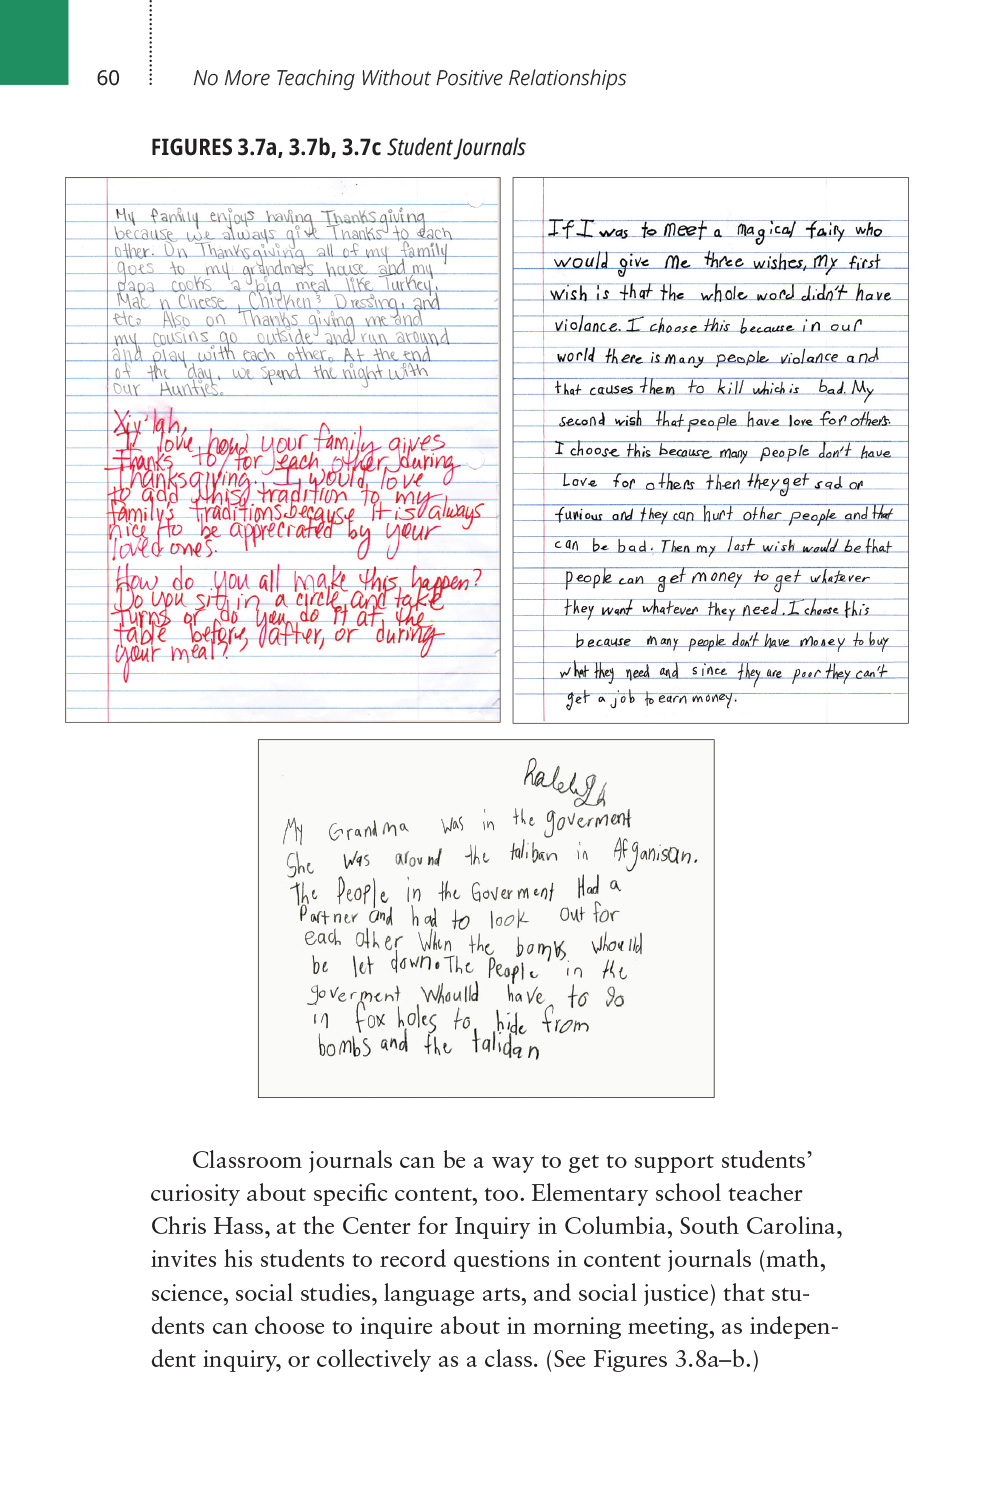 60
No More Teaching Without Positive Relationships
FIGURES 3.7a, 3.7b, 3.7c Student Journals
My family enjoys having Thanksgiving
because we always give Thanks to each
other. On Thanksgiving all of my family
goes to my grandma's house and my
papa cooks a big meal like Turkey,
Mac n Cheese, Chicken & Dressing, and
etc. Also on Thanks giving me and
my cousins go outside and run around
and play with each other. At the end
of the day, we spend the night with
our Aunties.
Xiy'lah,
I love how your family gives
Thanks to/for each other during
Thanksgiving. I would love
to add this tradition to my
family's traditions because it is always
nice to be apprecrated by your
loved ones.
How do you all make this happen?
Do you sit in a circle and take
turns or do you do it at the
table before, after, or during
your meal?
If I was to meet a magical fairy who
would give me three wishes, my first
wish is that the whole word didn't have
violance. I choose this because in our
world there is many people violance and
that causes them to kill which is bad. My
second wish that people have love for others.
I choose this because many people don't have
Love for others then they get sad or
furious and they can hurt other people and that
can be bad. Then my last wish would be that
people can get money to get whatever
they want whatever they need. I choose this
because many people don't have money to buy
what they need and since they are poor they can't
get a job to earn money.
Raleigh
My Grandma was in the goverment
She was around the taliban in Afganisan.
The People in the Goverment Had a
Partner and had to look out for
each other When the bombs whoulld
be let down. The People in the
goverment Whoulld have to go
in fox holes to hide from
bombs and the talidan
Classroom journals can be a way to get to support students’
curiosity about specific content, too. Elementary school teacher
Chris Hass, at the Center for Inquiry in Columbia, South Carolina,
invites his students to record questions in content journals (math,
science, social studies, language arts, and social justice) that stu-
dents can choose to inquire about in morning meeting, as indepen-
dent inquiry, or collectively as a class. (See Figures 3.8a–b.)